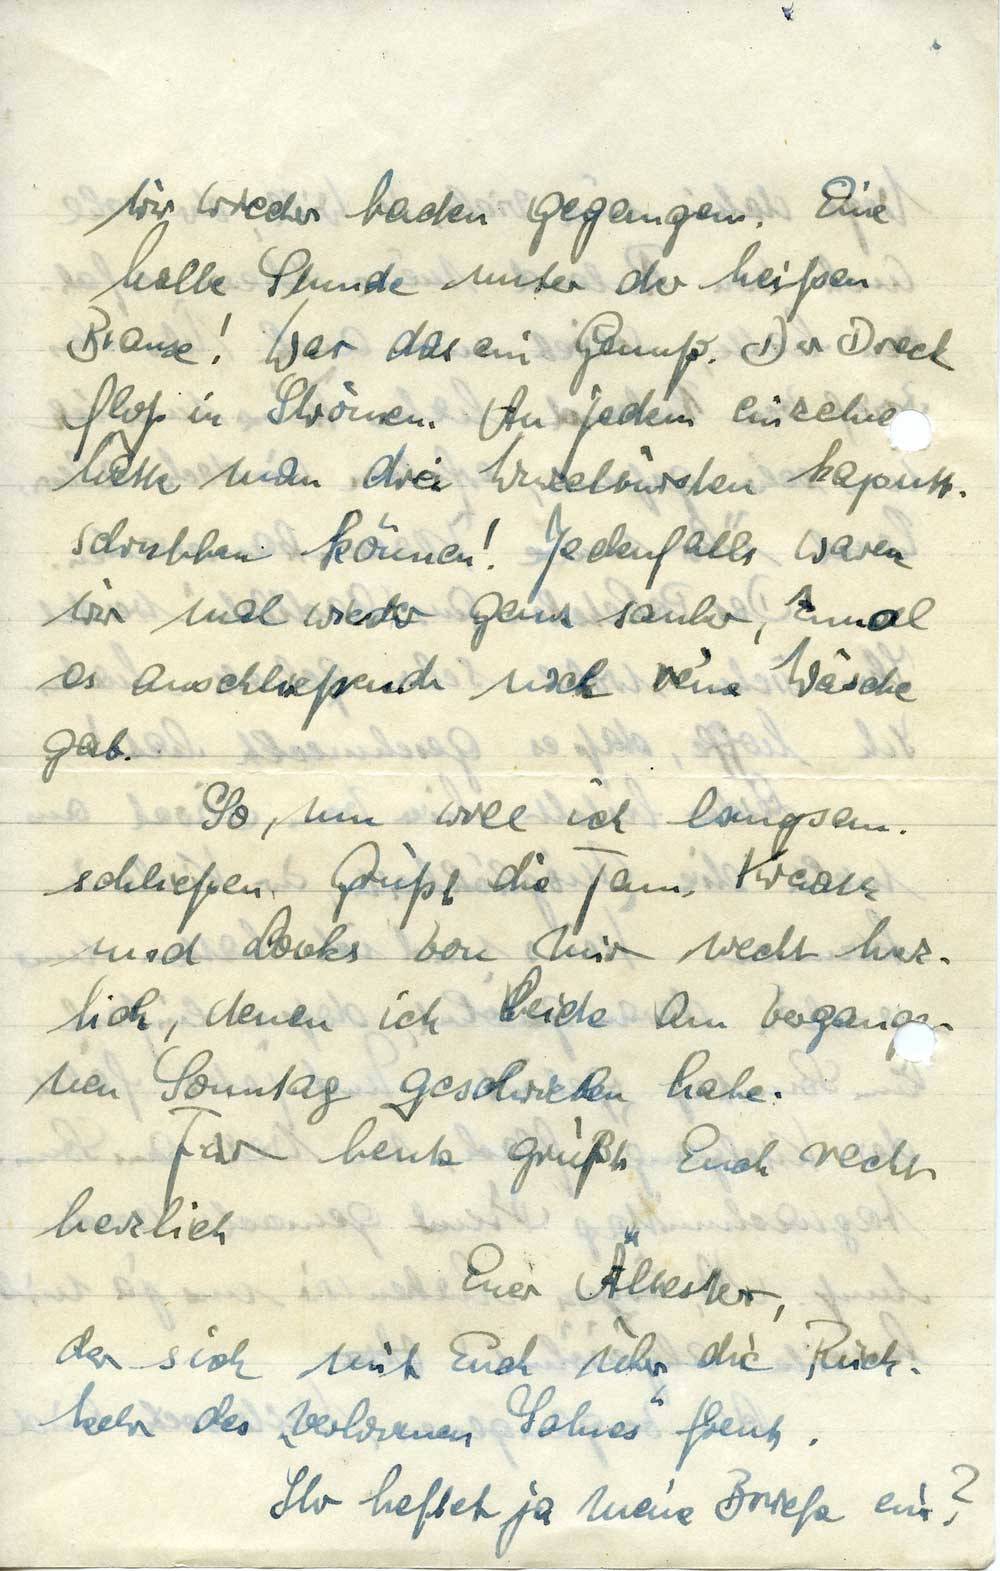 wir wieder baden gegangen. Eine
halbe Stunde unter der heißen
Brause! War das ein Genuß. Der Dreck
floß in Strömen. An jedem einzelne
hätte man drei Wurzelbürsten kaputt-
schrubben können! Jedenfalls waren
wir mal wieder ganz sauber, zumal
es anschließend noch reine Wäsche
gab.
So, nun will ich langsam
schließen. Grüßt die Fam.
und Looks von mir recht herz-
lich, denen ich beide am vergange-
nen Sonntag geschrieben habe.
Für heute grüßt Euch recht
herzlich
Euer Ältester,
der sich mit Euch über die Rück-
kehr des „verlorenen Sohnes“ freut.
Ihr heftet ja meine Briefe ein?